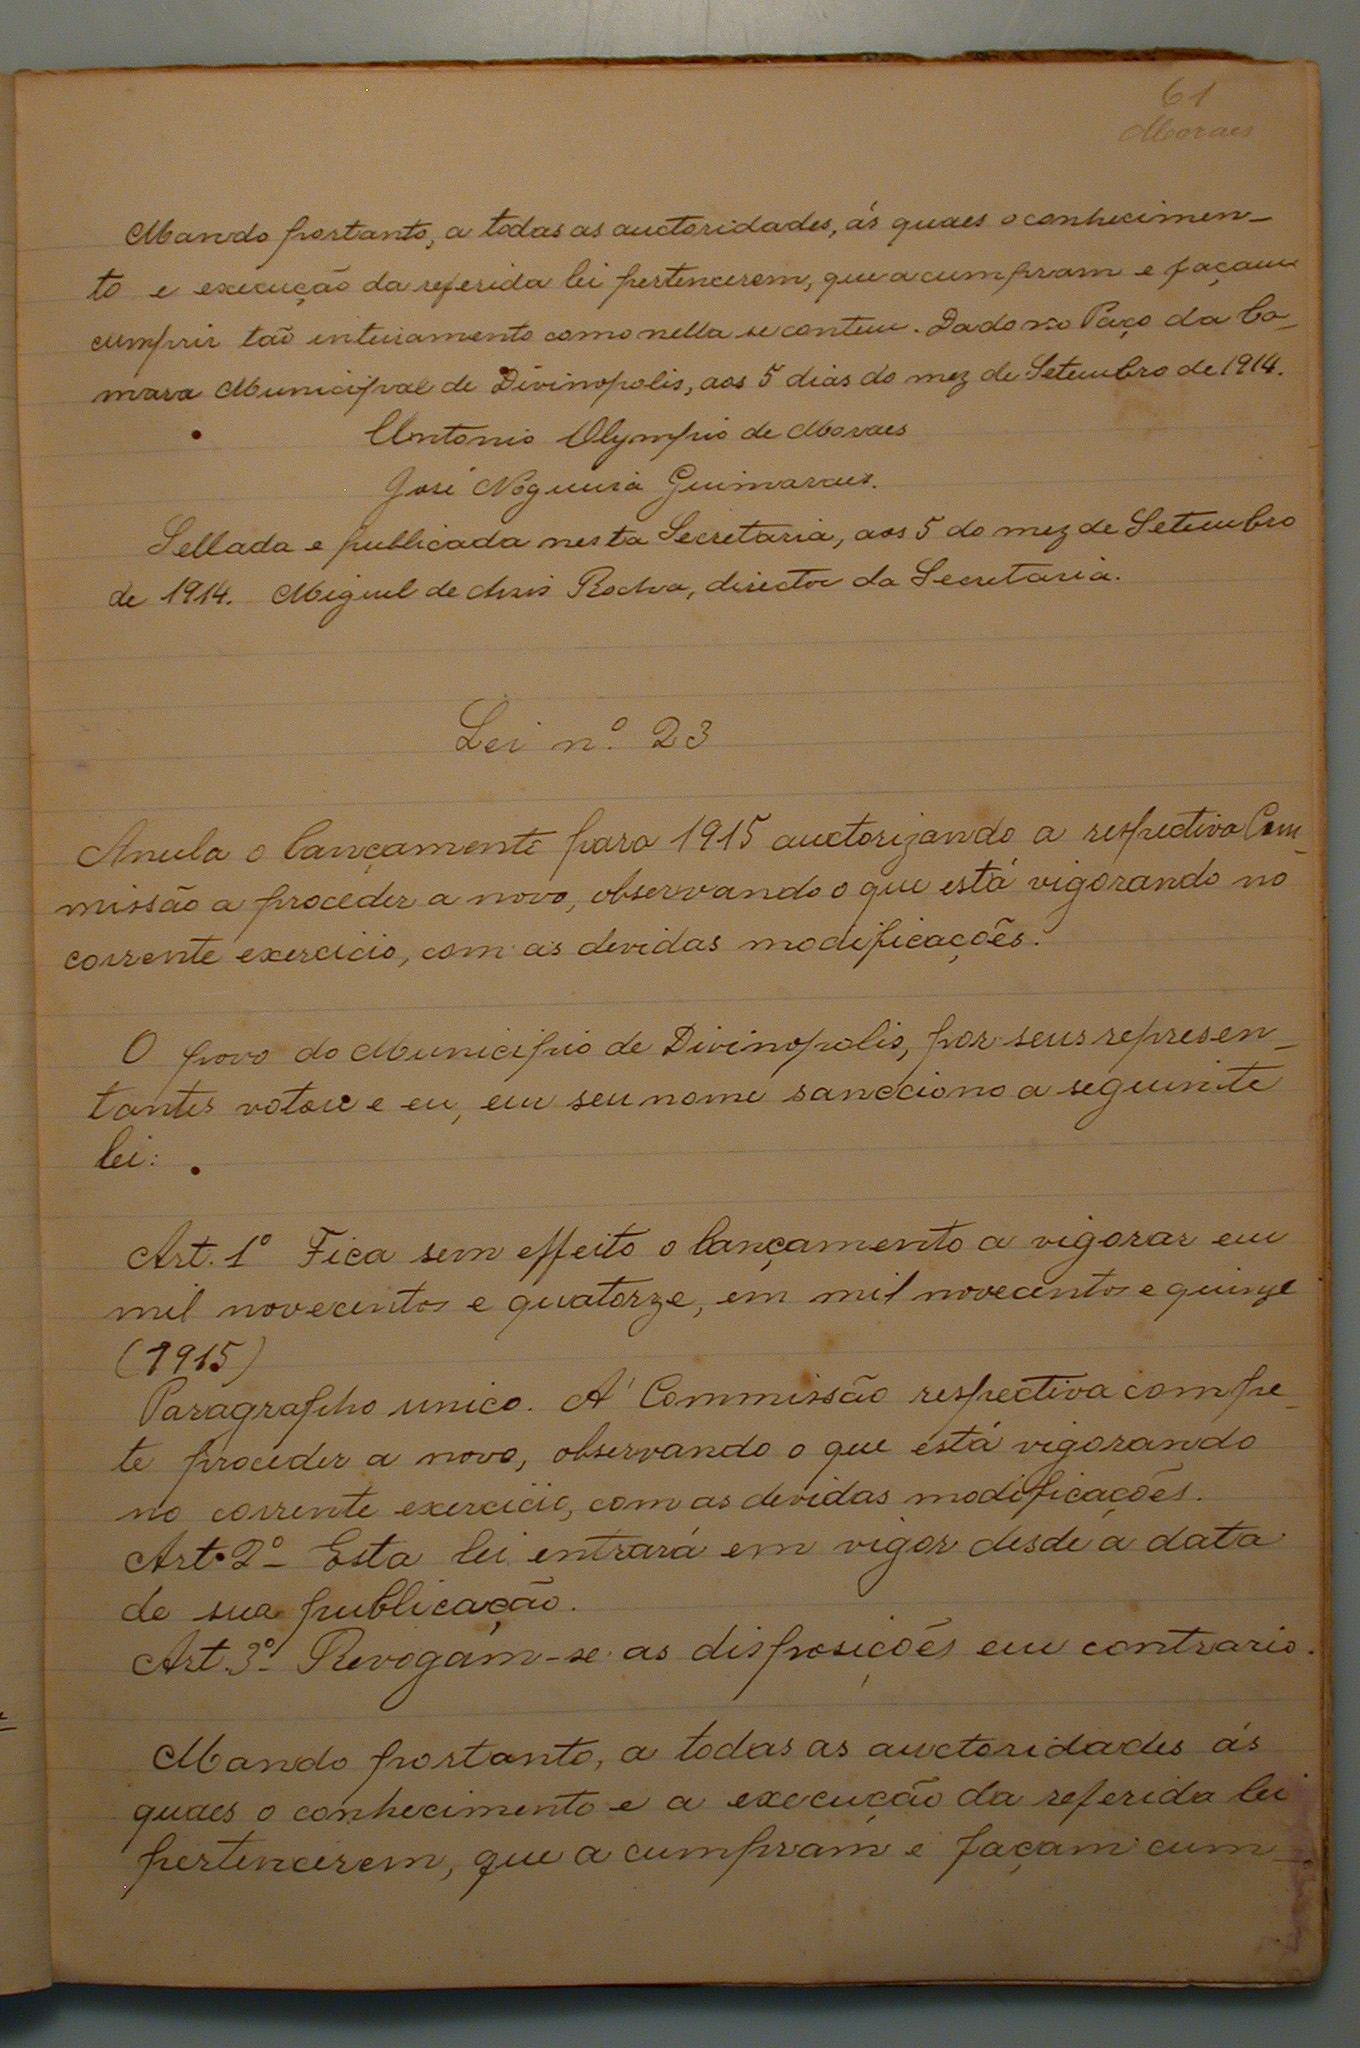 61
Moraes
Mando portanto, a todas as auctoridades, ás quaes o conhecimen-
to e execução da referida lei pertencerem, que a cumpram e façam
cumprir tão inteiramente como nella se contem. Dado no Paço da Ca-
mara Municipal de Divinopolis, aos 5 dias do mez de Setembro de 1914.
Antonio Olympio de Moraes
José Nogueira Guimaraes.
Sellada e publicada nesta Secretaria, aos 5 do mez de Setembro
de 1914. Miguel de Assis Rocha, director da Secretaria.
Lei nº. 23
Anula o lançamento para 1915 auctorizando a respectiva Com-
missão a proceder a novo, observando o que está vigorando no
corrente exercicio, com as devidas modificações.
O povo do Municipio de Divinopolis, por seus represen-
tantes votou e eu, em seu nome sancciono a seguinte
lei:
Art. 1º Fica sem effeito o lançamento a vigorar em
mil novecentos e quatorze, em mil novecentos e quinze
(1915)
Paragrapho unico. A' Commissão respectiva compe-
te proceder a novo, observando o que está vigorando
no corrente exercicio, com as devidas modificações.
Art. 2º - Esta lei entrará em vigor desde a data
de sua publicação.
Art. 3º - Revogam-se as disposições em contrario.
Mando portanto, a todas as auctoridades ás
quaes o conhecimento e a execução da referida lei
pertencerem, que a cumpram e façam cum-